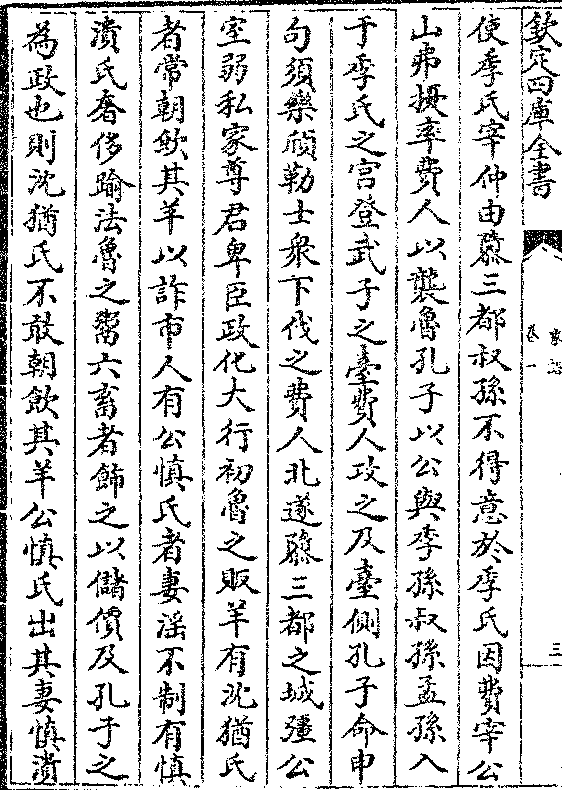 欽定四庫全書
家語
卷一
三
使季氏宰仲由隳三都叔孫不得意於季氏因費宰公
山弗擾率費人以襲魯孔子以公與季孫叔孫孟孫入
于季氏之宮登武子之臺費人攻之及臺側孔子命申
句須樂頎勒士衆下伐之費人北遂隳三都之城彊公
室弱私家尊君卑臣政化大行初魯之販羊有沈猶氏
者常朝飲其羊以詐市人有公慎氏者妻淫不制有慎
潰氏奢侈踰法魯之鬻六畜者飾之以儲價及孔子之
為政也則沈猶氏不敢朝飲其羊公慎氏出其妻慎潰